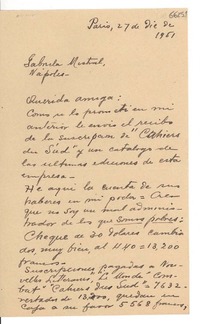 Paris, 27 de Dic de
1951
Gabriela Mistral,
Nápoles.-
Querida amiga:
Como se lo prometí en mi
anterior le envío el recibo
de la suscripción de "Cahiers
du Sud" y un catálogo de
las últimas ediciones de esta
empresa.-
He aquí la cuenta de sus
haberes en mi poder:- Cre
que no soy un mal adminis-
trador de los que somos pobres:
Cheque de 30 dolares cambia
dos, muy bien al 440 = 13.200
francos.-
Suscripciones pagadas a Nou-
velles Litteraires, "Monde" Com-
bat "Cahiers du Sud" = 7632.-
restados de 13,200, quedan en
caja a su favor 5568 francos,